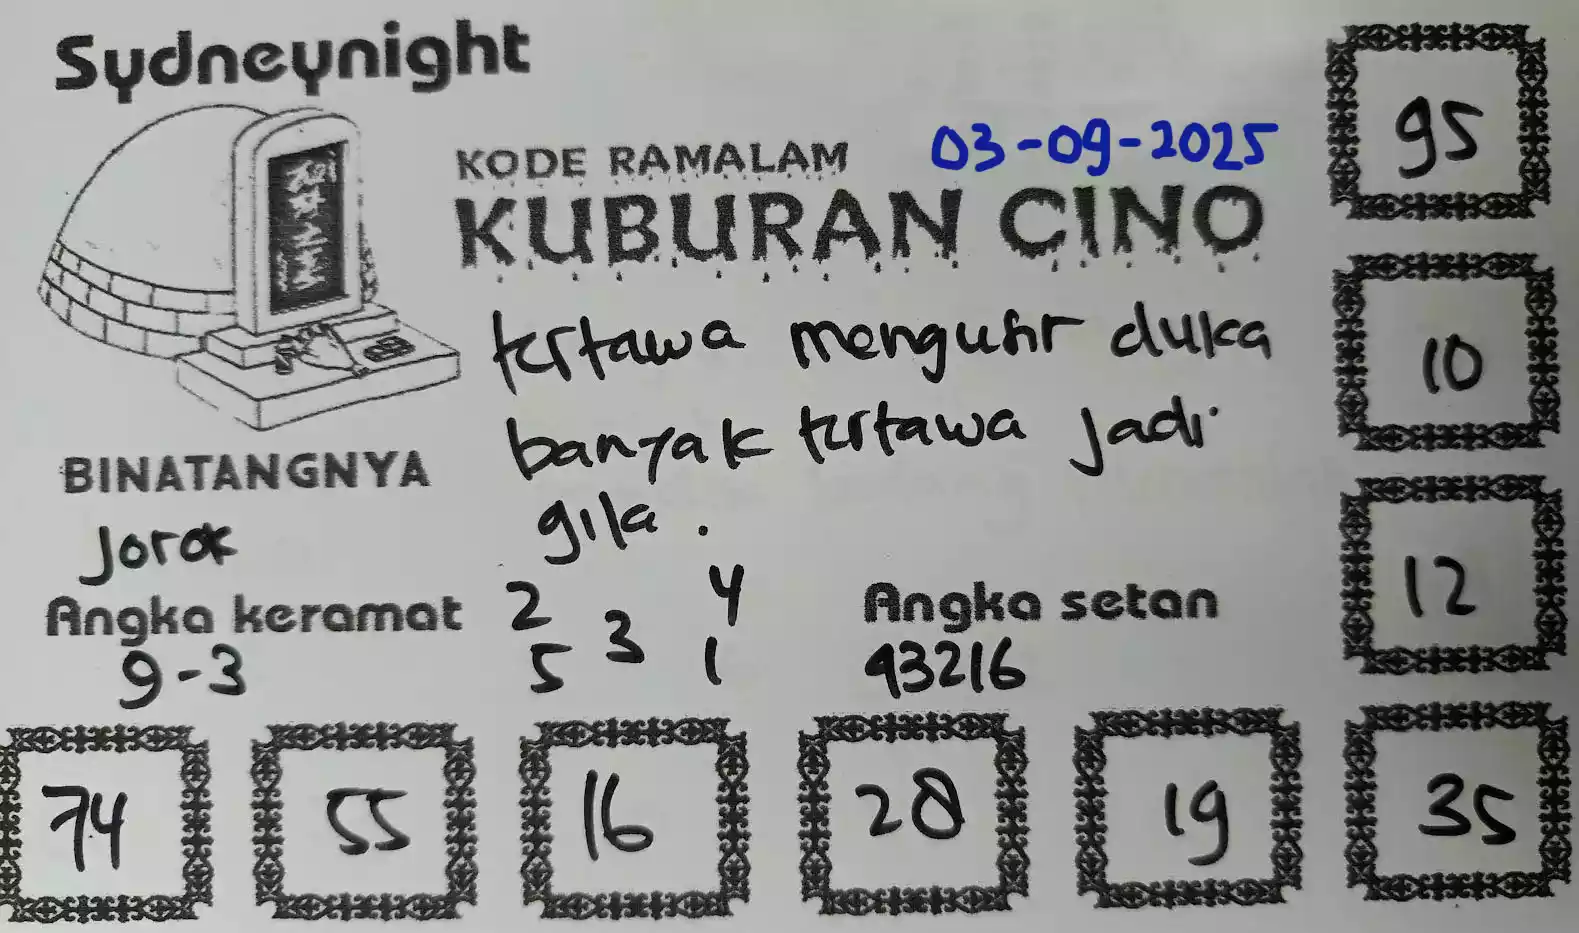 Sydneynight
03-09-2025
KODE RAMALAM
KUBURAN CINO
tertawa mengusir duka
banyak tertawa jadi
gila.
BINATANGNYA
Jorok
Angka keramat
9-3
2 4
3
5 1
Angka setan
93216
95
10
12
74 55 16 28 19 35